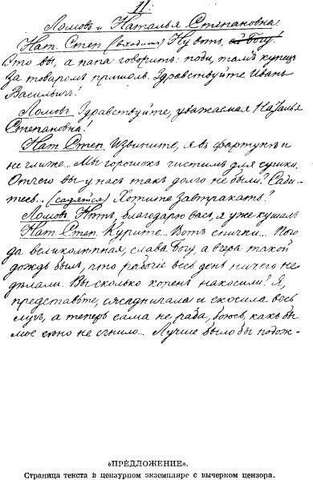 II.
Ломовъ и Наталья Степановна
Нат. Степ (входитъ) Ну вотъ, ей Богу.
Это вы, а папа говоритъ: поди, тамъ купецъ
за товаромъ пришолъ. Здравствуйте Иванъ
Васильичъ!
Ломовъ. Здравствуйте, уважаемая Наталья
Степановна!
Нат Степ. Извините, я въ фартукѣ и
неглиже... Мы горошекъ чистимъ для сушки.
Отчего вы у насъ такъ долго не были? Сади-
тесь... (садятся) Хотите завтракать?
Ломовъ Нѣтъ, благодарю васъ, я уже кушалъ
Нат Степ Курите... Вотъ спички... Пого
да великолѣпная, слава Богу, а вчера такой
дождь былъ, что рабочіе весь день ничего не
дѣлали. Вы сколько копенъ накосили? Я,
представьте, ожадничала и скосила весь
лугъ, а теперь сама не рада, боюсь, какъ бы
мое сѣно не сгнило... Лучше было бы подож-
«ПРЕДЛОЖЕНИЕ».
Страница текста в цензурном экземпляре с вычерком цензора.